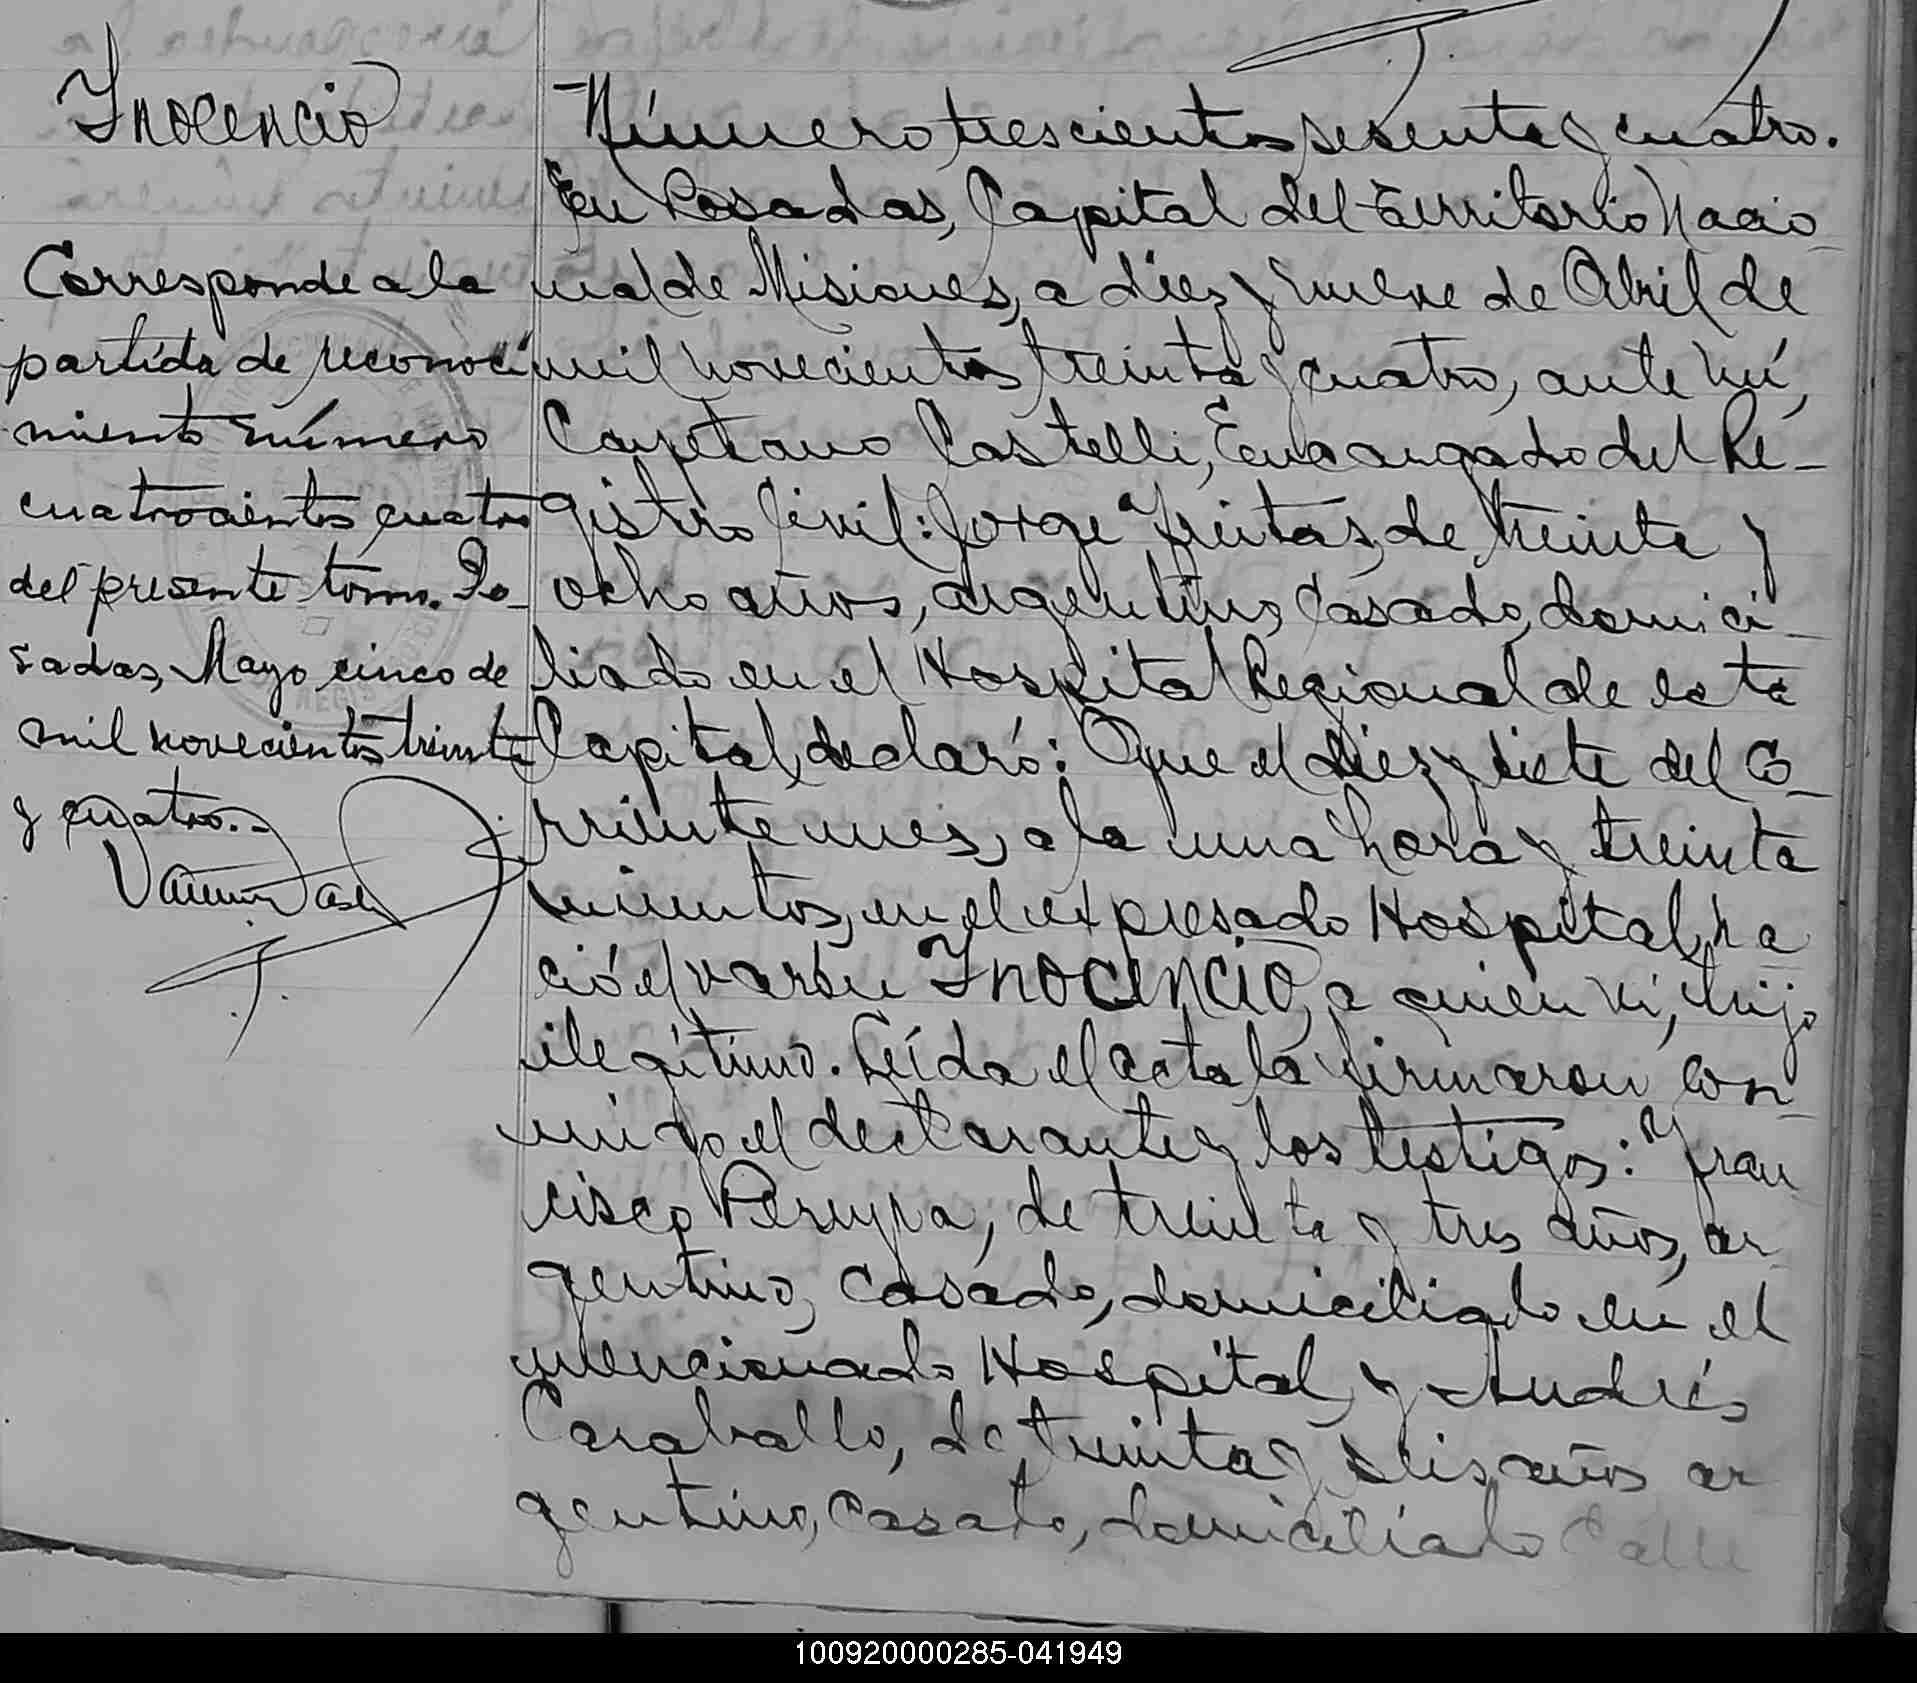 Inocencio
Corresponde a la
partida de reconoci
miento número
cuatrocientos cuatro
del presente tomo. Po-
sadas, Mayo cinco de
mil novecientos treinta
y cuatro.-
Número trescientos sesenta y cuatro.
En Posadas, Capital del territorio Nacio-
nal de Misiones, a diez y nueve de Abril de
mil novecientos treinta y cuatro, ante mí,
Cayetano Castelli, Encargado del Re-
gistro Civil: Jorge Freitas, de treinta y
ocho años, argentino, casado, domici-
liado en el Hospital Regional de esta
Capital, declaró: Que el diez y siete del co-
rriente mes, a la una hora y treinta
minutos, en el expresado Hospital, na
ció el varón Inocencio, a quien ví, hijo
ilegítimo. Leída el acta la firmaron con-
migo el declarante y los testigos: Fran-
cisco Pereyra, de treinta y tres años, ar-
gentino, casado, domiciliado en el
mencionado Hospital, y Andrés
Caraballo, de treinta y seis años ar
gentino, casado, domiciliado Calle
100920000285-041949